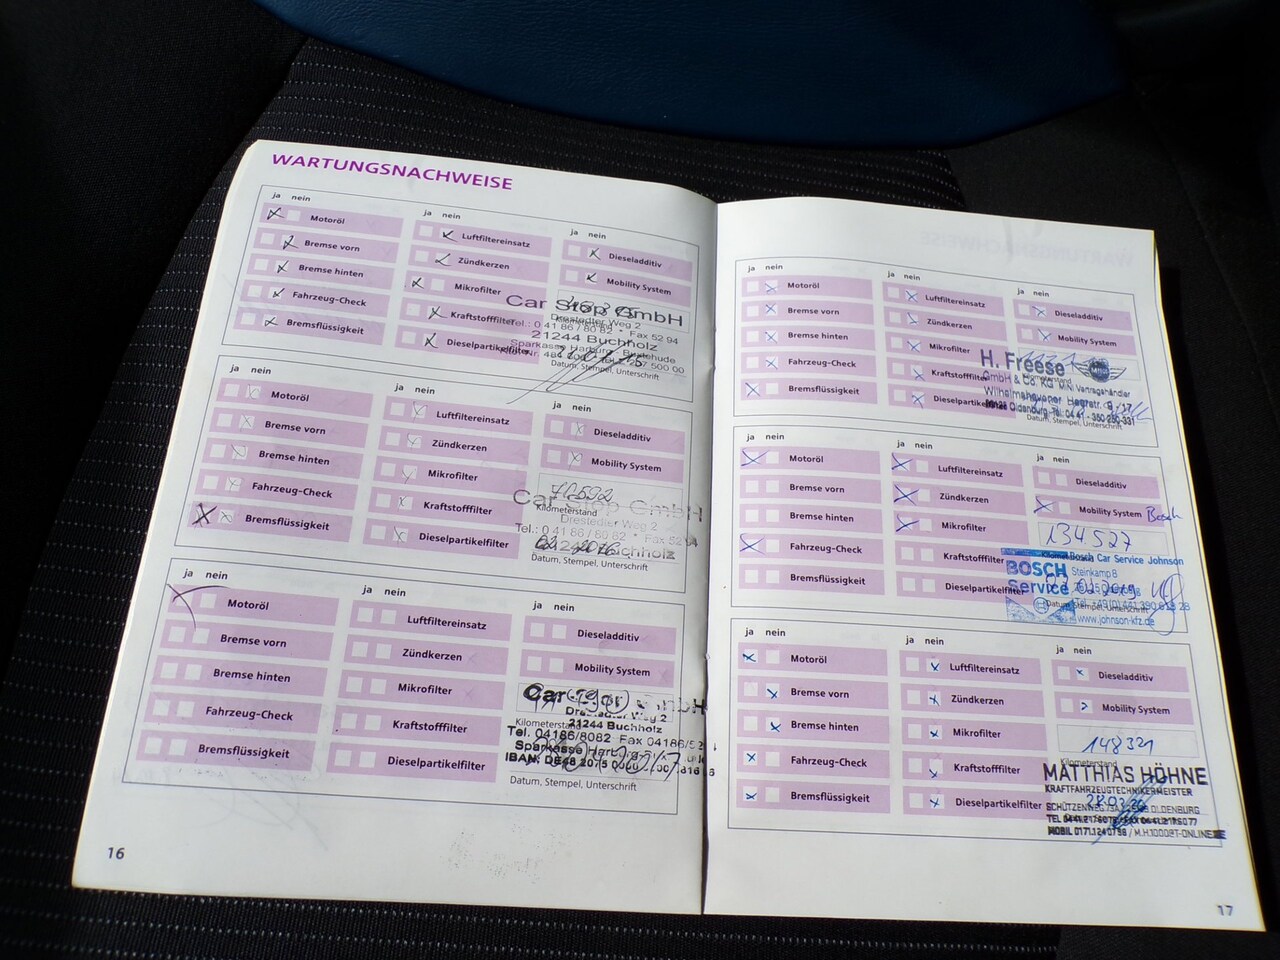 WARTUNGSNACHWEISE
ja nein
Motoröl
Bremse vorn
Bremse hinten
Fahrzeug-Check
Bremsflüssigkeit
ja nein
Luftfiltereinsatz
Zündkerzen
Mikrofilter
Kraftstofffilter
Dieselpartikelfilter
ja nein
Dieseladditiv
Mobility System
Car Stop GmbH
Drestedter Weg 2
Tel.: 0 41 86 / 80 82 * Fax 52 94
21244 Buchholz
Sparkasse Harburg - Buxtehude
Datum, Stempel, Unterschrift
ja nein
Motoröl
Bremse vorn
Bremse hinten
Fahrzeug-Check
Bremsflüssigkeit
ja nein
Luftfiltereinsatz
Zündkerzen
Mikrofilter
Kraftstofffilter
Dieselpartikelfilter
ja nein
Dieseladditiv
Mobility System
Kilometerstand
Car Stop GmbH
Drestedter Weg 2
Tel.: 0 41 86 / 80 82 * Fax 52
21244 Buchholz
Datum, Stempel, Unterschrift
ja nein
Motoröl
Bremse vorn
Bremse hinten
Fahrzeug-Check
Bremsflüssigkeit
ja nein
Luftfiltereinsatz
Zündkerzen
Mikrofilter
Kraftstofffilter
Dieselpartikelfilter
ja nein
Dieseladditiv
Mobility System
Car Stop GmbH
Drestedter Weg 2
Kilometerstand
21244 Buchholz
Tel. 04186/8082 Fax 04186/52
Sparkasse Harburg
Datum, Stempel, Unterschrift
16
ja nein
Motoröl
Bremse vorn
Bremse hinten
Fahrzeug-Check
Bremsflüssigkeit
ja nein
Luftfiltereinsatz
Zündkerzen
Mikrofilter
Kraftstofffilter
Dieselpartikelfilter
ja nein
Dieseladditiv
Mobility System
H. Freese
MINI
GmbH & Co. KG MINI Vertragshändler
Wilhelmshavener Heerstr.
Oldenburg Tel. 04 41 - 350 250-331
Datum, Stempel, Unterschrift
ja nein
Motoröl
Bremse vorn
Bremse hinten
Fahrzeug-Check
Bremsflüssigkeit
ja nein
Luftfiltereinsatz
Zündkerzen
Mikrofilter
Kraftstofffilter
Dieselpartikelfilter
ja nein
Dieseladditiv
Mobility System Bosch
134527
Bosch Car Service Johnson
BOSCH
Service
Steinkamp 8
www.johnson-kfz.de
ja nein
Motoröl
Bremse vorn
Bremse hinten
Fahrzeug-Check
Bremsflüssigkeit
ja nein
Luftfiltereinsatz
Zündkerzen
Mikrofilter
Kraftstofffilter
Dieselpartikelfilter
ja nein
Dieseladditiv
Mobility System
148321
Kilometerstand
MATTHIAS HÖHNE
KRAFTFAHRZEUGTECHNIKERMEISTER
28.03.20
OLDENBURG
17